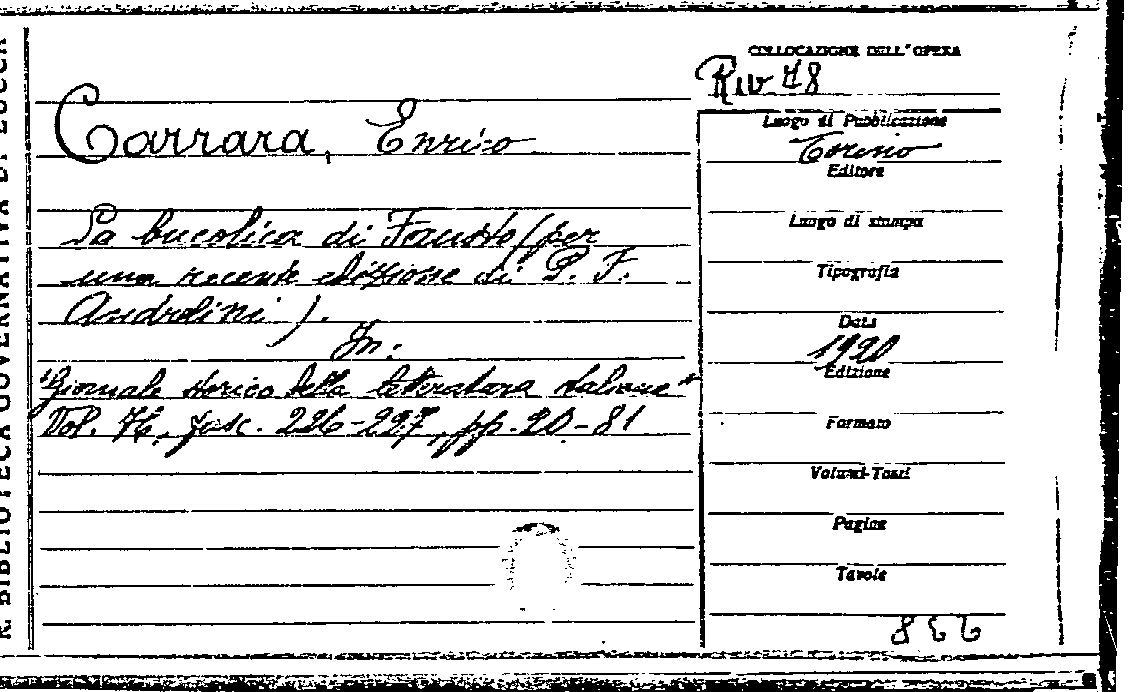 R. BIBLIOTECA GOVERNATIVA DI LUCCA
COLLOCAZIONE DELL'OPERA
Riv 78
Carrara, Enrico
La bucolica di Fausto (per
una recente edizione di P. F.
Andrelini).
In:
"Giornale storico della letteratura italiana"
Vol. 76, fasc. 226-227, pp. 20-81
Luogo di Pubblicazione
Torino
Editore
Luogo di stampa
Tipografia
Data
1920
Edizione
Formato
Volumi-Tomi
Pagine
Tavole